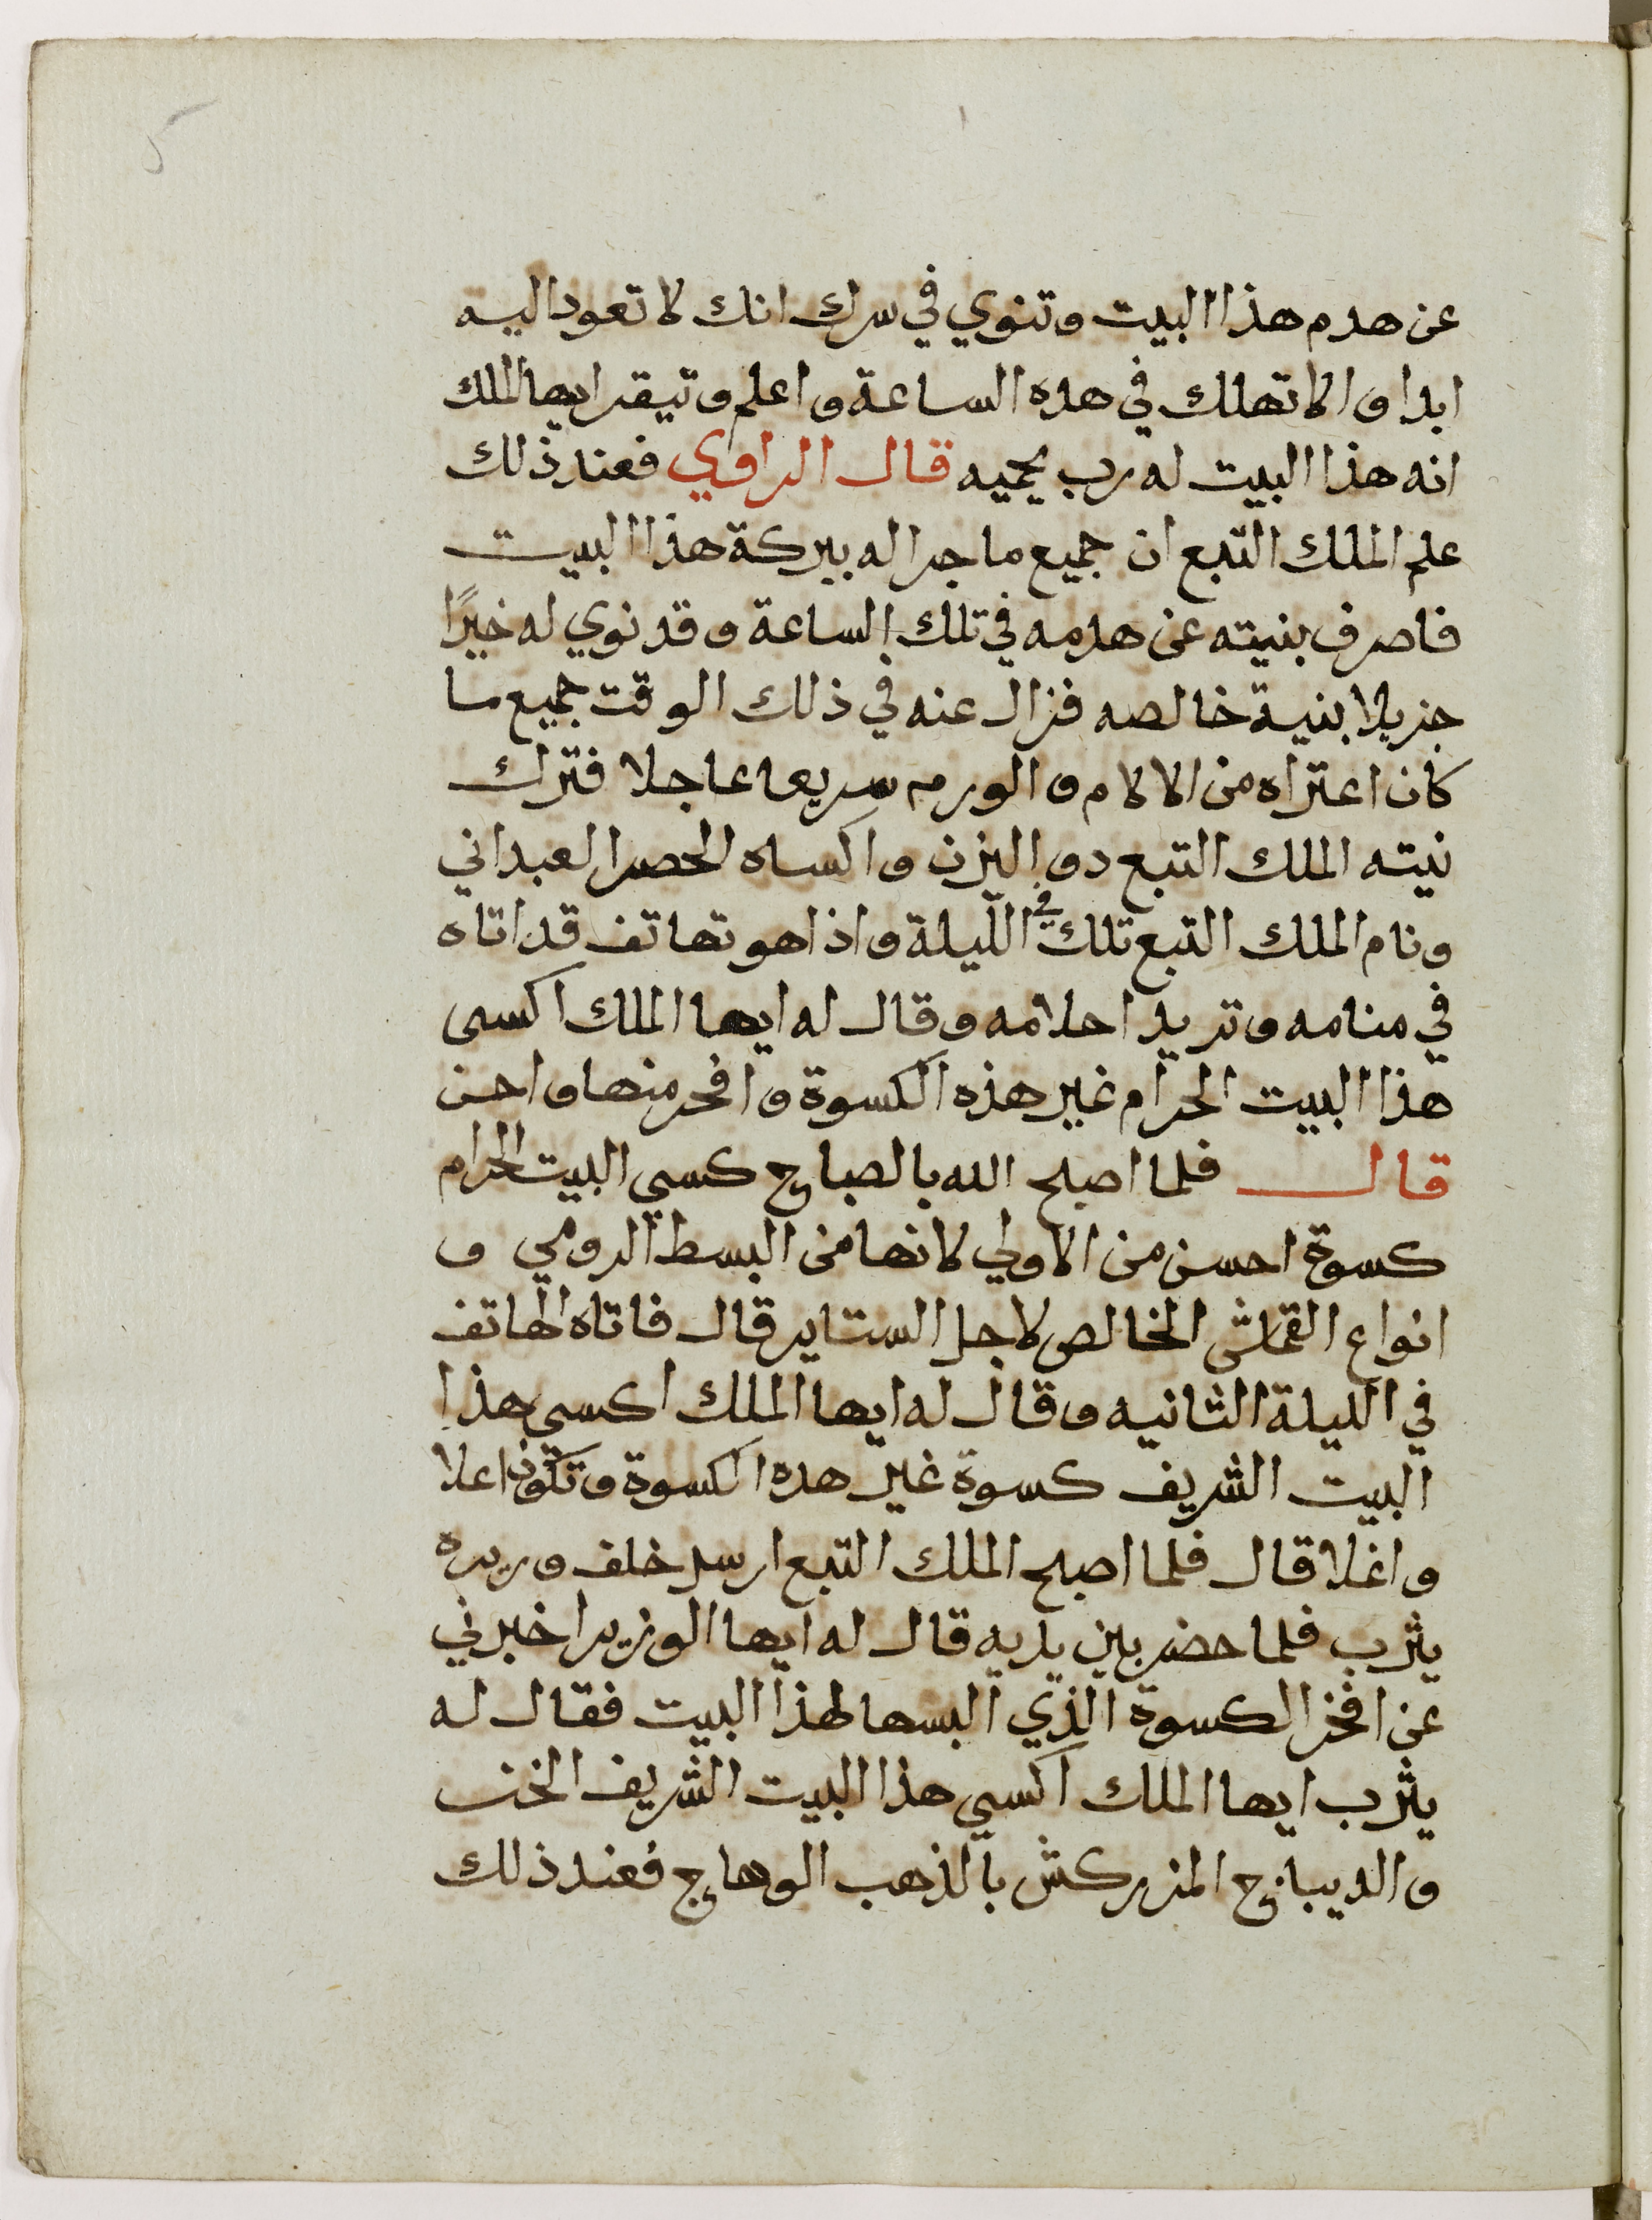 عن هدم هذا البيت وتنوي في سرك انك لا تعود اليه
ابدا والا تهلك في هده الساعة واعلم وتيقن ايها الملك
انه هذا البيت له رب يحميه قال الراوي فعند ذلك
علم الملك التبع ان جميع ما جرا له ببركة هذا البيت
فاصرف بنيته عن هدمه في تلك الساعة وقد نوي له خيرًا
جزيلا بنية خالصه فزال عنه في ذلك الوقت جميع ما
كان اعتراه من الالام والورم سريعا عاجلا فترك
نيته الملك التبع دو اليزن واكساه الحصر العبداني
ونام الملك التبع في تلك الليلة واذا هو بهاتف قد اتاه
في منامه وتريد احلامه وقال له ايها الملك اكسى
هذا البيت الحرام غير هذه الكسوة وافخر منها واحسن
قال فلما اصبح الله بالصباح كسي البيت الحرام
كسوة احسن من الاولي لانها من البسط الرومي و
انواع القماش الخالص لاجل الستاير قال فاتاه الهاتف
في الليلة الثانيه وقال له ايها الملك اكسي هذا
البيت الشريف كسوة غير هده الكسوة وتكون اعلا
واغلا قال فلما اصبح الملك التبع ارسل خلف وزيره
يثرب فلما حضر بين يديه قال له ايها الوزير اخبرني
عن افخر الكسوة الذي البسها لهذا البيت فقال له
يثرب ايها الملك اكسي هذا البيت الشريف الخز
والديباج المزركش بالذهب الوهاج فعند ذلك